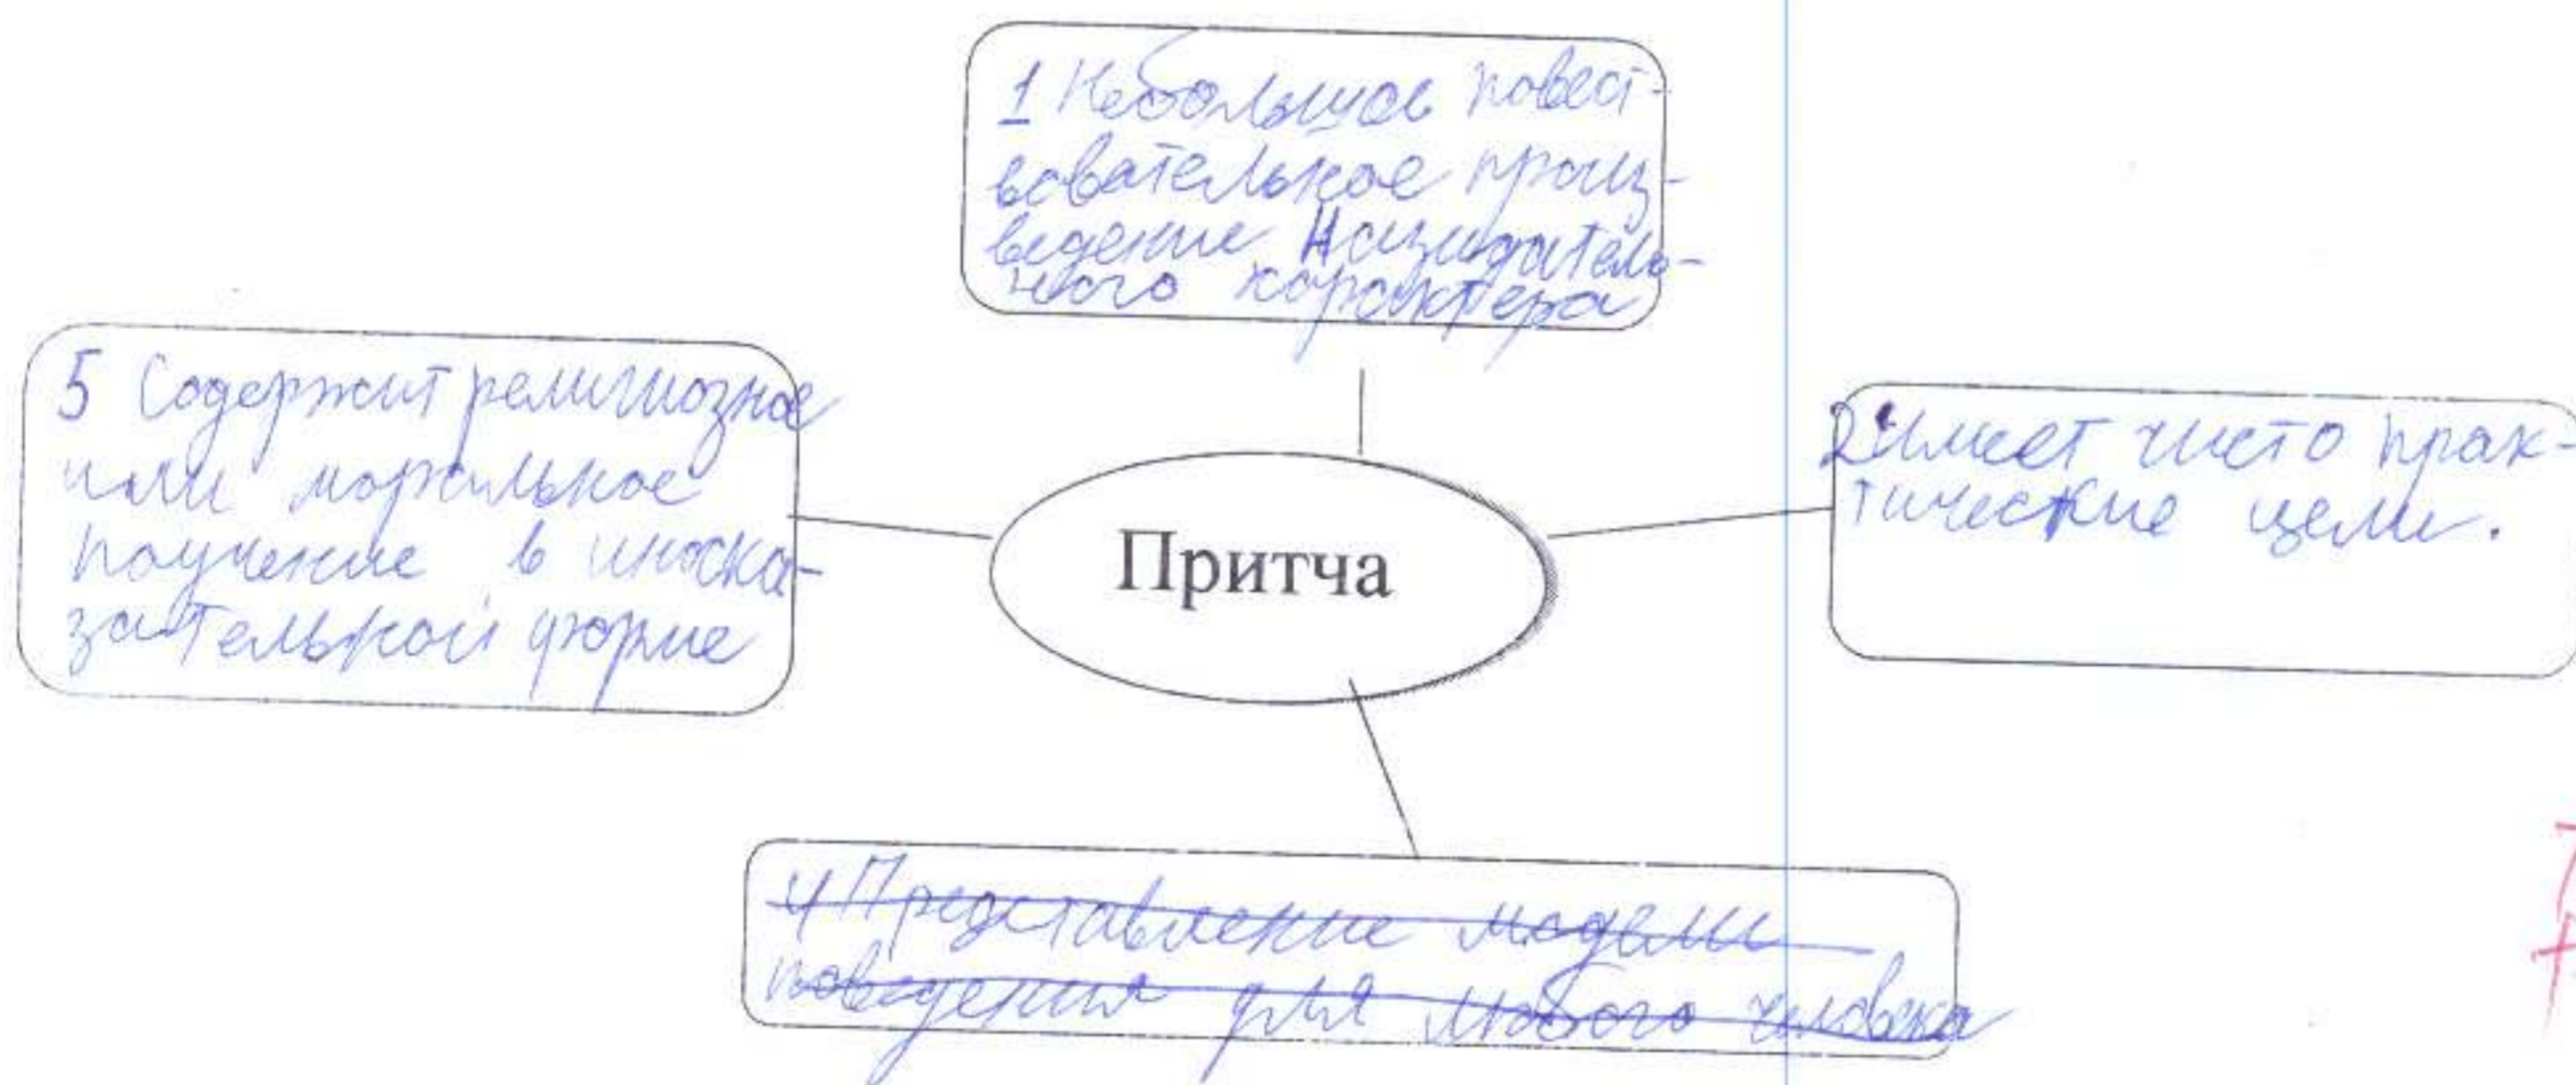 1 Небольшое повест-
вовательное произ-
ведение Назидатель-
ного характера
5 Содержит религиозное
или моральное
поучение в иноска-
зательной форме
Притча
2 Имеет чисто прак-
тические цели.
4 Представление модели
поведения для любого человека